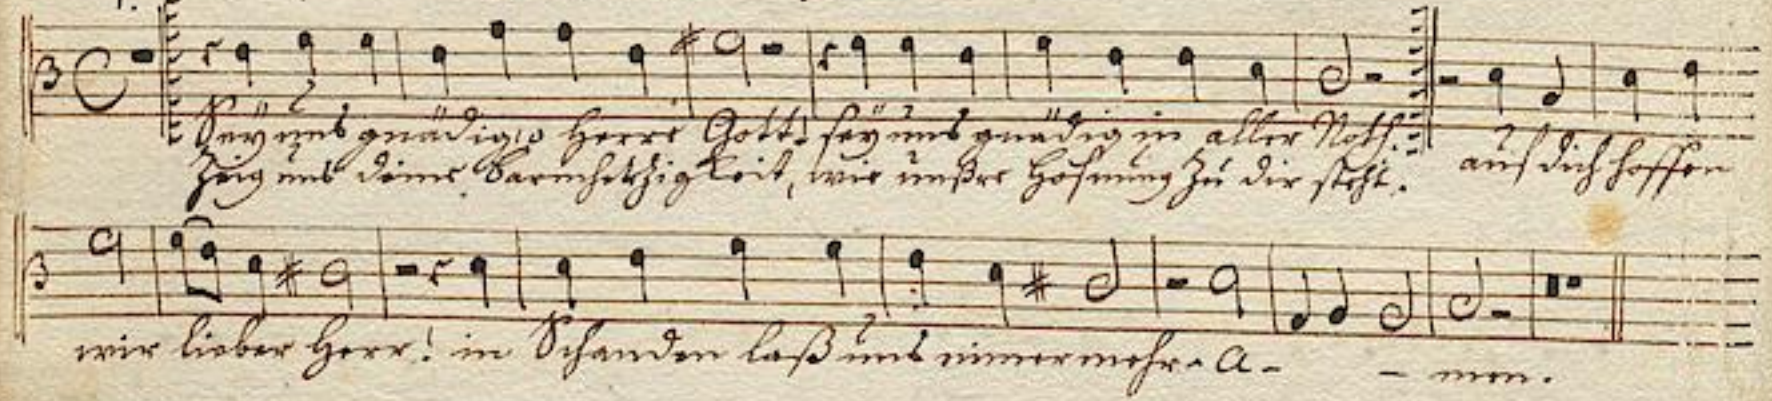 Sey uns gnädig, o Herre Gott! sey uns gnädig in aller Noth.
Zeig uns deine Barmhertzigkeit, wie unßre Hofnung zu dir steht. auf dich hoffen
wir lieber Herr! in Schanden laß uns nimermehr. A- - men.